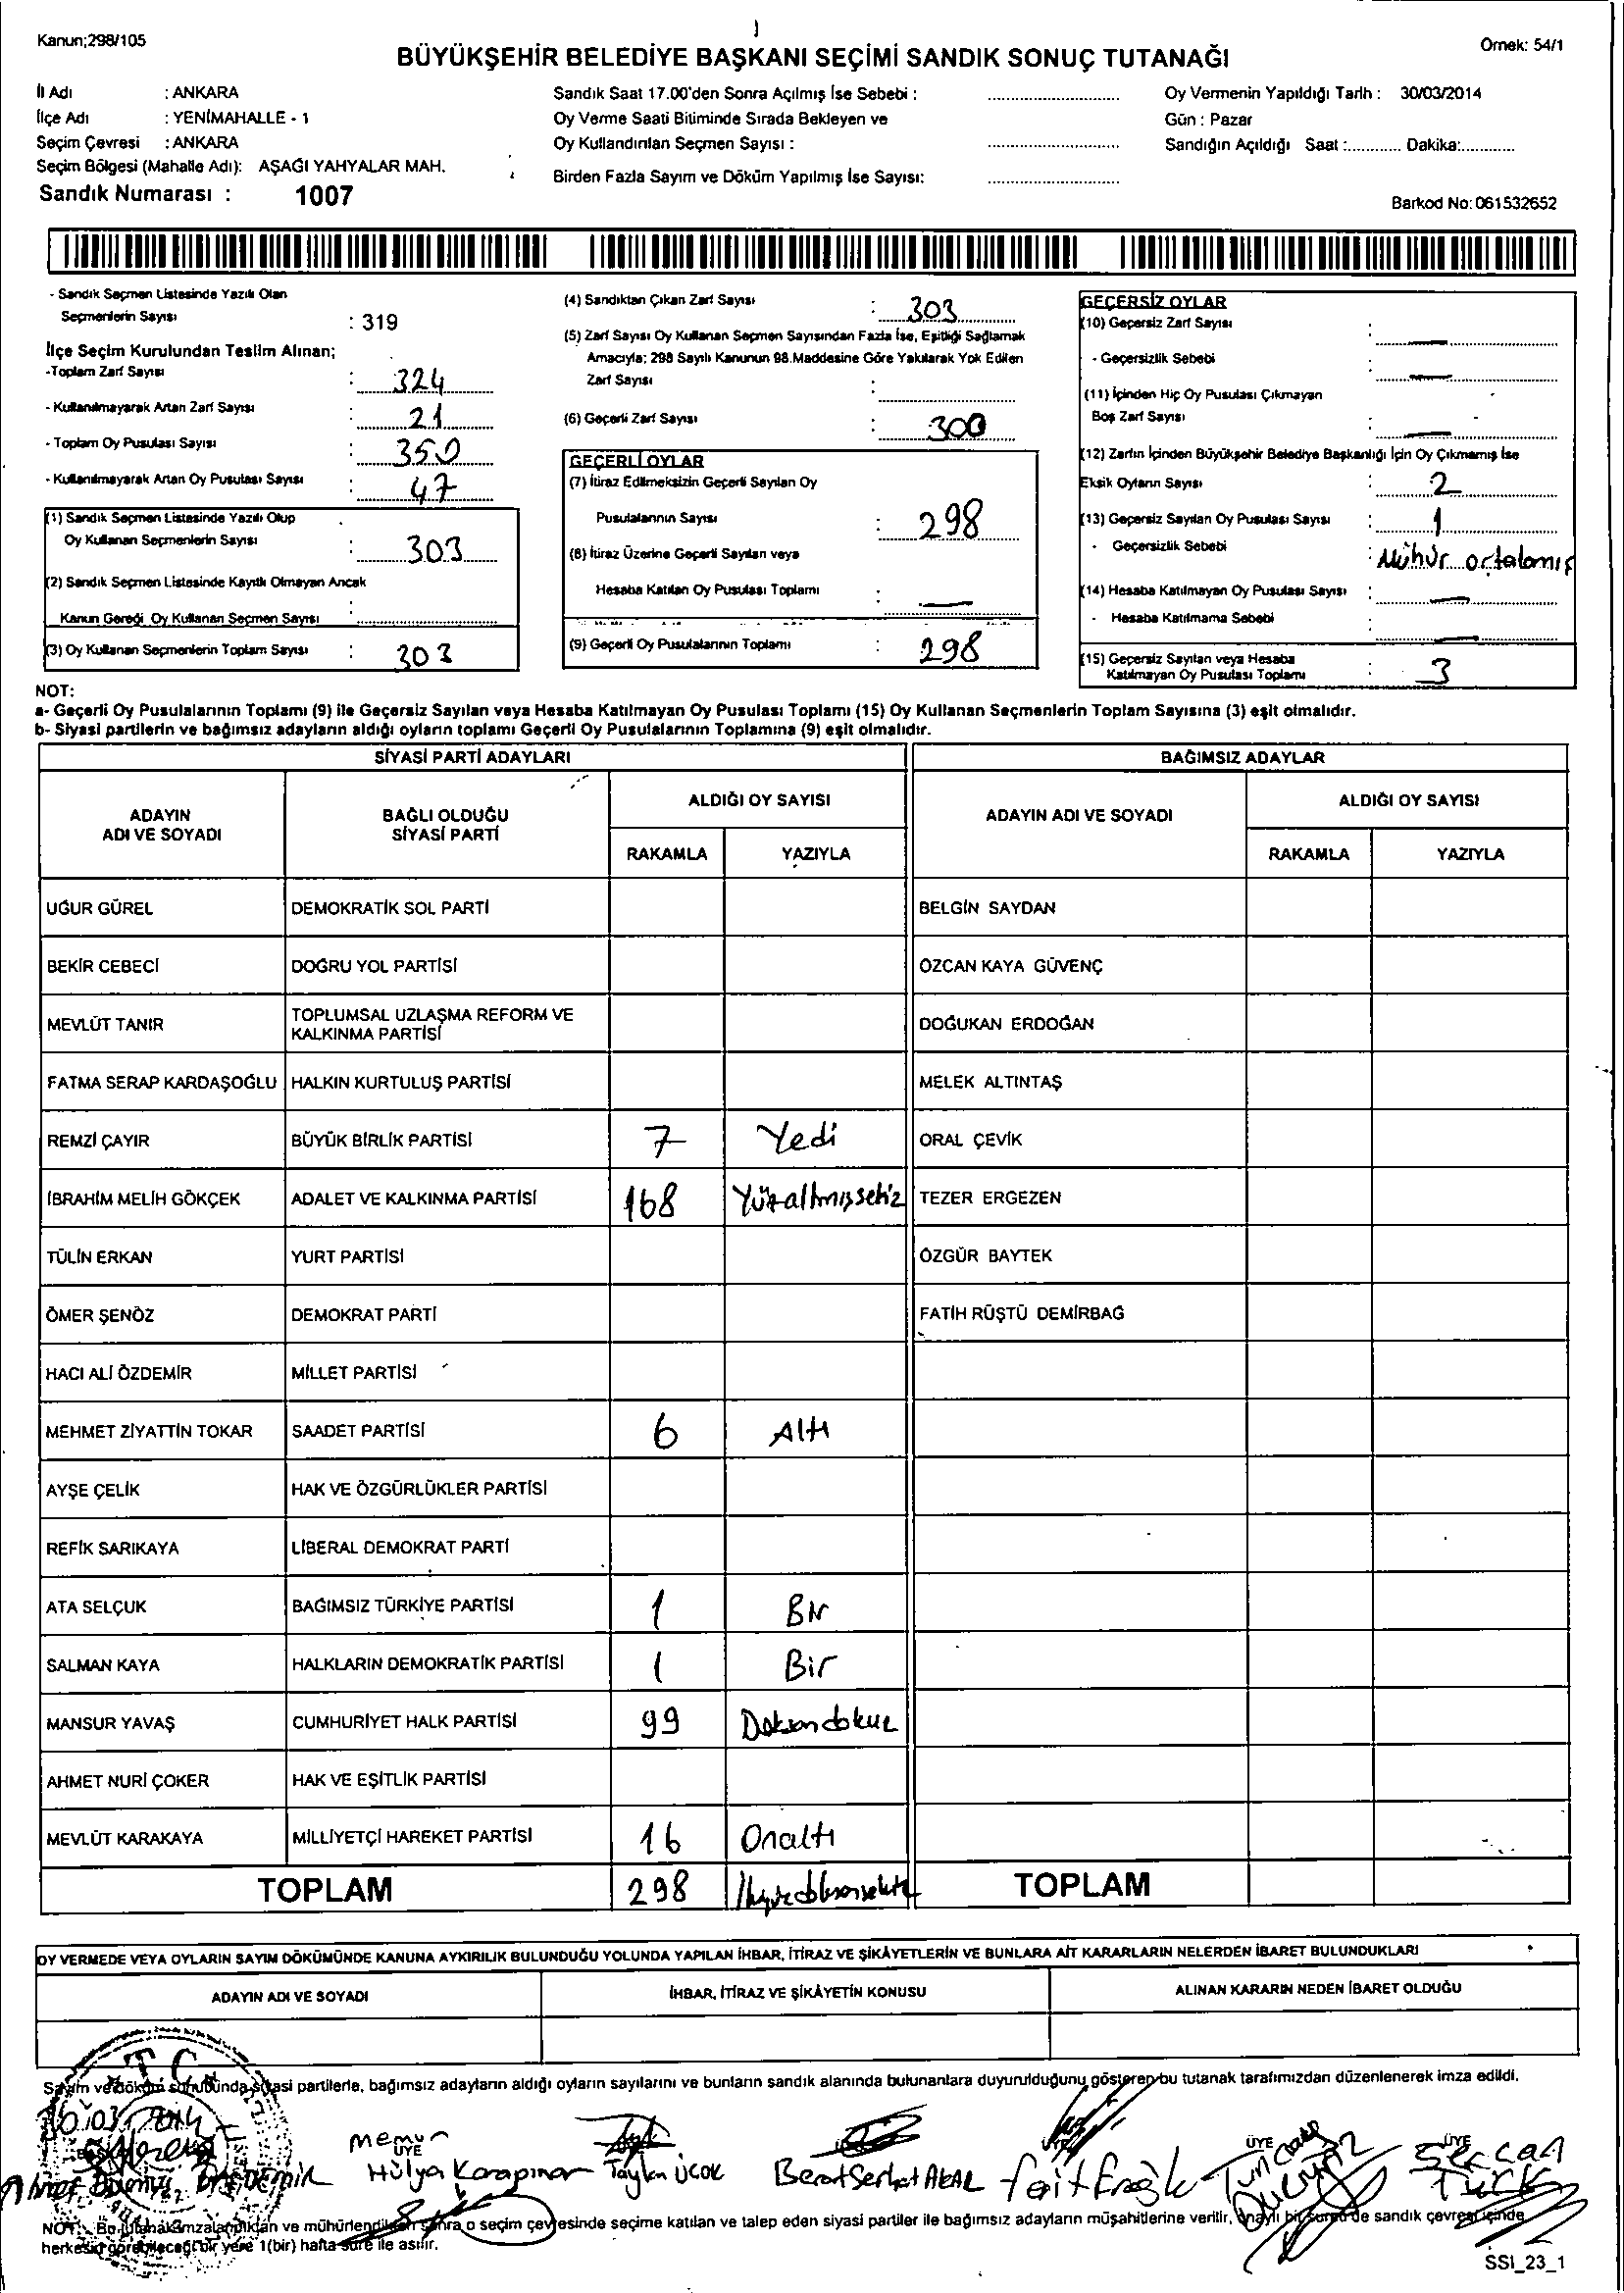 Kanun;298/105
BÜYÜKŞEHİR BELEDİYE BAŞKANI SEÇİMİ SANDIK SONUÇ TUTANAĞI
Örnek: 54/1
İl Adı : ANKARA
İlçe Adı : YENİMAHALLE - 1
Seçim Çevresi : ANKARA
Seçim Bölgesi (Mahalle Adı): AŞAĞI YAHYALAR MAH.
Sandık Numarası : 1007
Sandık Saat 17.00'den Sonra Açılmış İse Sebebi :
Oy Verme Saati Bitiminde Sırada Bekleyen ve
Oy Kullandırılan Seçmen Sayısı :
Birden Fazla Sayım ve Döküm Yapılmış İse Sayısı:
Oy Vermenin Yapıldığı Tarih : 30/03/2014
Gün : Pazar
Sandığın Açıldığı Saat :............ Dakika:............
Barkod No: 061532652
- Sandık Seçmen Listesinde Yazılı Olan
Seçmenlerin Sayısı : 319
İlçe Seçim Kurulundan Teslim Alınan;
-Toplam Zarf Sayısı : 324
- Kullanılmayarak Artan Zarf Sayısı : 21
- Toplam Oy Pusulası Sayısı : 350
- Kullanılmayarak Artan Oy Pusulası Sayısı : 47
(1) Sandık Seçmen Listesinde Yazılı Olup
Oy Kullanan Seçmenlerin Sayısı : 303
(2) Sandık Seçmen Listesinde Kayıtlı Olmayan Ancak
Kanun Gereği Oy Kullanan Seçmen Sayısı :
(3) Oy Kullanan Seçmenlerin Toplam Sayısı : 303
(4) Sandıktan Çıkan Zarf Sayısı : 303
(5) Zarf Sayısı Oy Kullanan Seçmen Sayısından Fazla İse, Eşitliği Sağlamak
Amacıyla; 298 Sayılı Kanunun 98.Maddesine Göre Yakılarak Yok Edilen
Zarf Sayısı :
(6) Geçerli Zarf Sayısı : 300
GEÇERLİ OYLAR
(7) İtiraz Edilmeksizin Geçerli Sayılan Oy
Pusulalarının Sayısı : 298
(8) İtiraz Üzerine Geçerli Sayılan veya
Hesaba Katılan Oy Pusulası Toplamı : —
(9) Geçerli Oy Pusulalarının Toplamı : 298
GEÇERSİZ OYLAR
(10) Geçersiz Zarf Sayısı : —
- Geçersizlik Sebebi : —
(11) İçinden Hiç Oy Pusulası Çıkmayan
Boş Zarf Sayısı : —
(12) Zarfın İçinden Büyükşehir Belediye Başkanlığı İçin Oy Çıkmamış İse
Eksik Oyların Sayısı : 2
(13) Geçersiz Sayılan Oy Pusulası Sayısı : 1
- Geçersizlik Sebebi : Mühür ortalamış
(14) Hesaba Katılmayan Oy Pusulası Sayısı : —
- Hesaba Katılmama Sebebi : —
(15) Geçersiz Sayılan veya Hesaba
Katılmayan Oy Pusulası Toplamı : 3
NOT:
a- Geçerli Oy Pusulalarının Toplamı (9) ile Geçersiz Sayılan veya Hesaba Katılmayan Oy Pusulası Toplamı (15) Oy Kullanan Seçmenlerin Toplam Sayısına (3) eşit olmalıdır.
b- Siyasi partilerin ve bağımsız adayların aldığı oyların toplamı Geçerli Oy Pusulalarının Toplamına (9) eşit olmalıdır.
SİYASİ PARTİ ADAYLARI BAĞIMSIZ ADAYLAR
ADAYIN ADI VE SOYADI BAĞLI OLDUĞU SİYASİ PARTİ ALDIĞI OY SAYISI ADAYIN ADI VE SOYADI ALDIĞI OY SAYISI
RAKAMLA YAZIYLA RAKAMLA YAZIYLA
UĞUR GÜREL DEMOKRATİK SOL PARTİ BELGİN SAYDAN
BEKİR CEBECİ DOĞRU YOL PARTİSİ ÖZCAN KAYA GÜVENÇ
MEVLÜT TANIR TOPLUMSAL UZLAŞMA REFORM VE KALKINMA PARTİSİ DOĞUKAN ERDOĞAN
FATMA SERAP KARDAŞOĞLU HALKIN KURTULUŞ PARTİSİ MELEK ALTINTAŞ
REMZİ ÇAYIR BÜYÜK BİRLİK PARTİSİ 7 Yedi ORAL ÇEVİK
İBRAHİM MELİH GÖKÇEK ADALET VE KALKINMA PARTİSİ 168 Yüzaltmışsekiz TEZER ERGEZEN
TÜLİN ERKAN YURT PARTİSİ ÖZGÜR BAYTEK
ÖMER ŞENÖZ DEMOKRAT PARTİ FATİH RÜŞTÜ DEMİRBAĞ
HACI ALİ ÖZDEMİR MİLLET PARTİSİ
MEHMET ZİYATTİN TOKAR SAADET PARTİSİ 6 Altı
AYŞE ÇELİK HAK VE ÖZGÜRLÜKLER PARTİSİ
REFİK SARIKAYA LİBERAL DEMOKRAT PARTİ
ATA SELÇUK BAĞIMSIZ TÜRKİYE PARTİSİ 1 Bir
SALMAN KAYA HALKLARIN DEMOKRATİK PARTİSİ 1 Bir
MANSUR YAVAŞ CUMHURİYET HALK PARTİSİ 99 Doksandokuz
AHMET NURİ ÇOKER HAK VE EŞİTLİK PARTİSİ
MEVLÜT KARAKAYA MİLLİYETÇİ HAREKET PARTİSİ 16 Onaltı
TOPLAM 298 İkiyüzdoksansekiz TOPLAM
OY VERMEDE VEYA OYLARIN SAYIM DÖKÜMÜNDE KANUNA AYKIRILIK BULUNDUĞU YOLUNDA YAPILAN İHBAR, İTİRAZ VE ŞİKÂYETLERİN VE BUNLARA AİT KARARLARIN NELERDEN İBARET BULUNDUKLARI
ADAYIN ADI VE SOYADI İHBAR, İTİRAZ VE ŞİKÂYETİN KONUSU ALINAN KARARIN NEDEN İBARET OLDUĞU
T.C.
Sayım ve döküm sonucunda siyasi partilerle, bağımsız adayların aldığı oyların sayılarını ve bunların sandık alanında bulunanlara duyurulduğunu gösteren bu tutanak tarafımızdan düzenlenerek imza edildi.
30/03/2014
memur ÜYE ÜYE ÜYE
Hülya Karapınar Taylan ÜÇOK Berat Serhat AKAR Tuncay Sercan Türk
NOT: Bu tutanak imzalandıktan ve mühürlendikten sonra o seçim çevresinde seçime katılan ve talep eden siyasi partiler ile bağımsız adayların müşahitlerine verilir, onaylı bir sureti de sandık çevresi içinde
herkesin görebileceği bir yere 1(bir) hafta süre ile asılır.
SSI_23_1